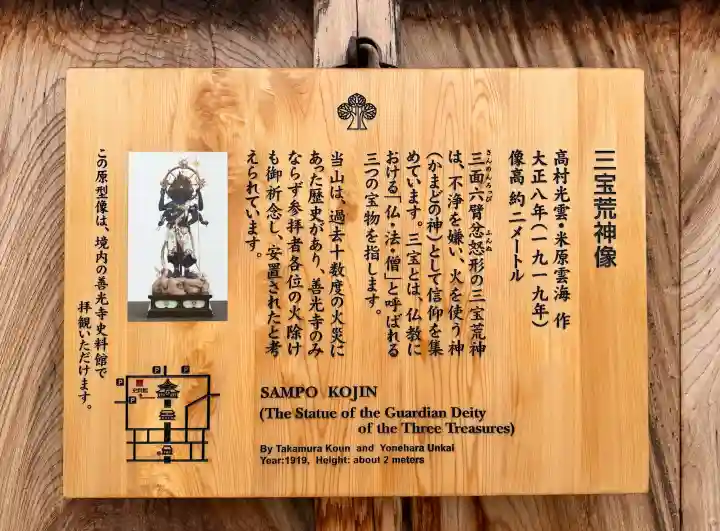 三宝荒神像
高村光雲・米原雲海 作
大正八年（一九一九年）
像高 約二メートル
さんめんろっぴ ふんぬ
三面六臂忿怒形の三宝荒神
は、不浄を嫌い、火を使う神
（かまどの神）として信仰を集
めています。三宝とは、仏教に
おける「仏・法・僧」と呼ばれる
三つの宝物を指します。
当山は、過去十数度の火災に
あった歴史があり、善光寺のみ
ならず参拝者各位の火除け
も御祈念し、安置されたと考
えられています。
この原型像は、境内の善光寺史料館で
拝観いただけます。
P
P
P
P
史料館
SAMPO KOJIN
(The Statue of the Guardian Deity
of the Three Treasures)
By Takamura Koun and Yonehara Unkai
Year:1919, Height: about 2 meters